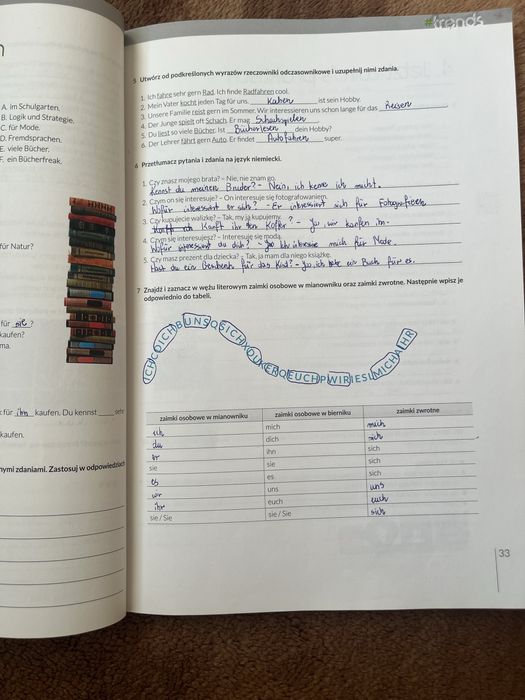 #trends
5 Utwórz od podkreślonych wyrazów rzeczowniki odczasownikowe i uzupełnij nimi zdania.
1. Ich fahre sehr gern Rad. Ich finde Radfahren cool.
2. Mein Vater kocht jeden Tag für uns. Kohen ist sein Hobby.
3. Unsere Familie reist gern im Sommer. Wir interessieren uns schon lange für das Reisen
4. Der Junge spielt oft Schach. Er mag Schachspielen
5. Du liest so viele Bücher. Ist Bücherlesen dein Hobby?
6. Der Lehrer fährt gern Auto. Er findet Autofahren super.
6 Przetłumacz pytania i zdania na język niemiecki.
1. Czy znasz mojego brata? – Nie, nie znam go.
Kennst du meinen Bruder? - Nein, ich kenne ich nicht.
2. Czym on się interesuje? – On interesuje się fotografowaniem.
Wofür interessiert er sich? - Er interessiert sich für Fotografieren
3. Czy kupujecie walizkę? – Tak, my ją kupujemy.
Kauft ihr den Koffer? - Ja, wir kaufen ihn.
4. Czym się interesujesz? – Interesuję się modą.
Wofür interessierst du dich? - Ich mich für Mode.
5. Czy masz prezent dla dziecka? – Tak, ja mam dla niego książkę.
Hast du ein Geschenk für das Kind? - Ja, ich habe Buch für es.
7 Znajdź i zaznacz w wężu literowym zaimki osobowe w mianowniku oraz zaimki zwrotne. Następnie wpisz je
odpowiednio do tabeli.
zaimki osobowe w mianowniku zaimki osobowe w bierniku zaimki zwrotne
ich mich mich
du dich sich
er ihn sich
sie sie sich
es es sich
wir uns uns
ihr euch euch
sie / Sie sie / Sie sich
33
A. im Schulgarten.
B. Logik und Strategie.
C. für Mode.
D. Fremdsprachen.
E. viele Bücher.
F. ein Bücherfreak.
für Natur?
für sie ?
kaufen?
ma.
für ihn kaufen. Du kennst sehr
kaufen.
nymi zdaniami. Zastosuj w odpowiedziach